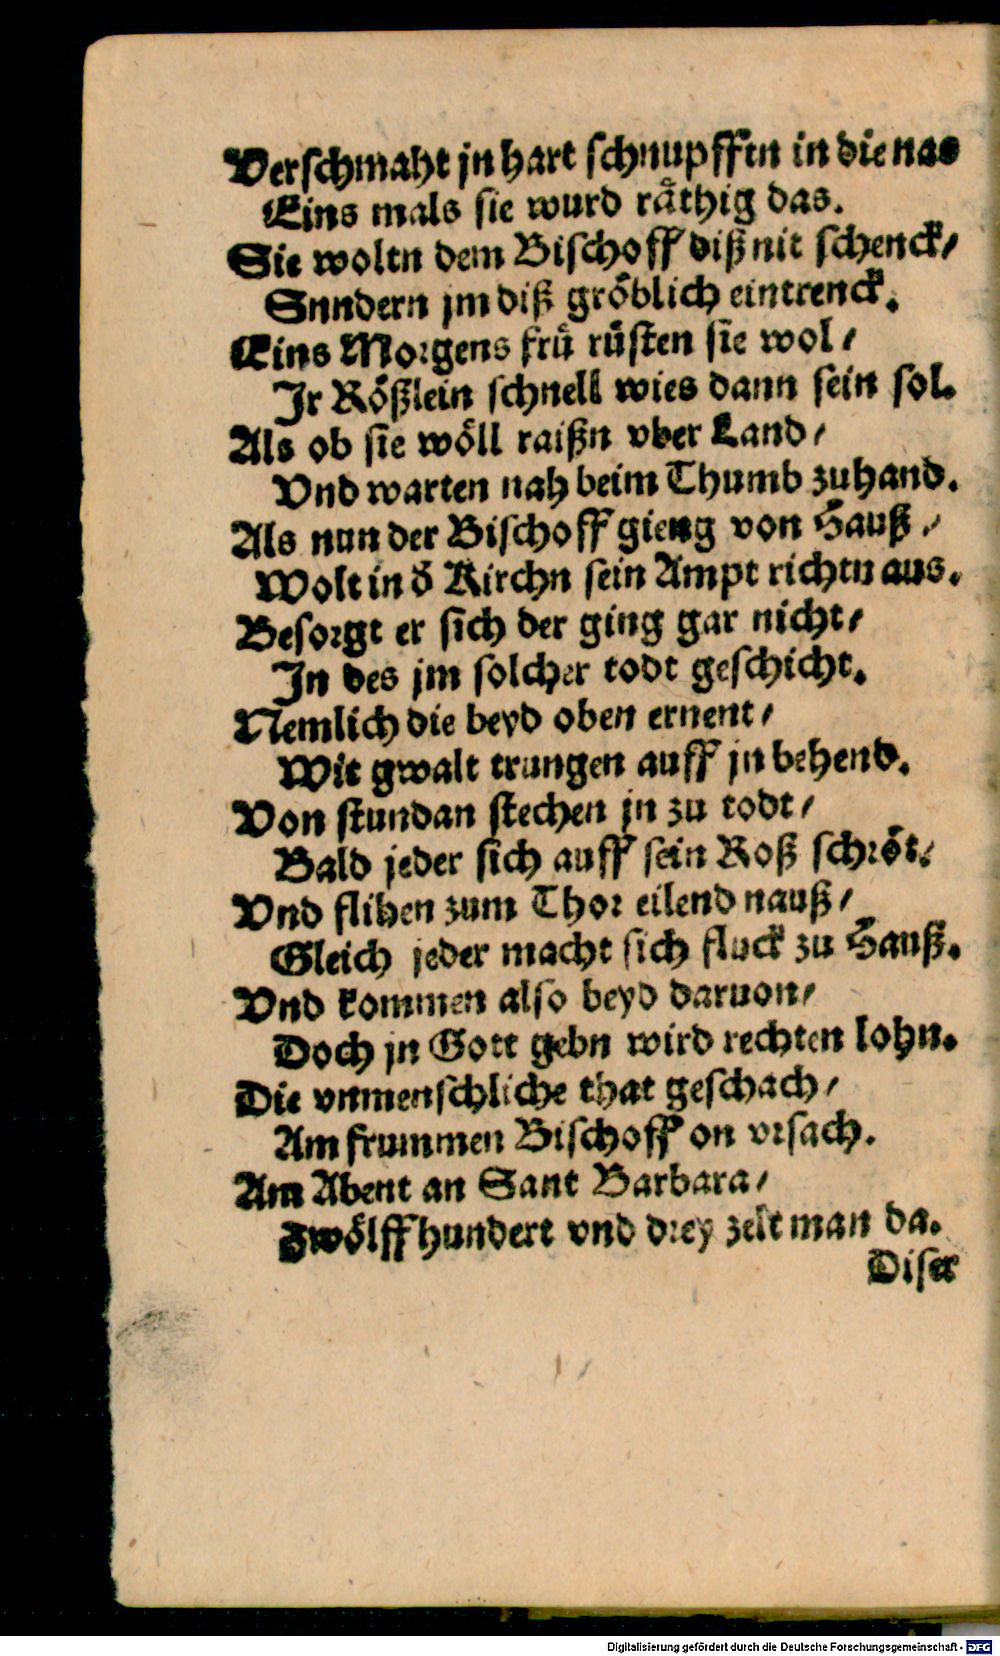 Verschmaht jn hart schnupfftn in die nas
Eins mals sie wurd raͤthig das.
Sie woltn dem Bischoff diß nit schenck/
Snndern jm diß groͤblich eintrenck.
Eins Morgens fruͤ ruͤsten sie wol/
Jr Roͤßlein schnell wies dann sein sol.
Als ob sie woͤll raißn vber Land/
Vnd warten nah beim Thumb zuhand.
Als nun der Bischoff gieng von Hauß/
Wolt in d̕ Kirchn sein Ampt richtn aus.
Besorgt er sich der ging gar nicht/
In des jm solcher todt geschicht.
Nemlich die beyd oben ernent/
Mit gwalt trungen auff jn behend.
Von stundan stechen jn zu todt/
Bald jeder sich auff sein Roß schroͤt.
Vnd flihen zum Thor eilend nauß/
Gleich jeder macht sich fluck zu Hauß.
Vnd kommen also beyd daruon/
Doch jn Gott gebn wird rechten lohn.
Die vnmenschliche that geschach/
Am frummen Bischoff on vrsach.
Am Abent an Sant Barbara/
Zwoͤlffhundert vnd drey zelt man da.
Diser
Digitalisierung gefördert durch die Deutsche Forschungsgemeinschaft - DFG